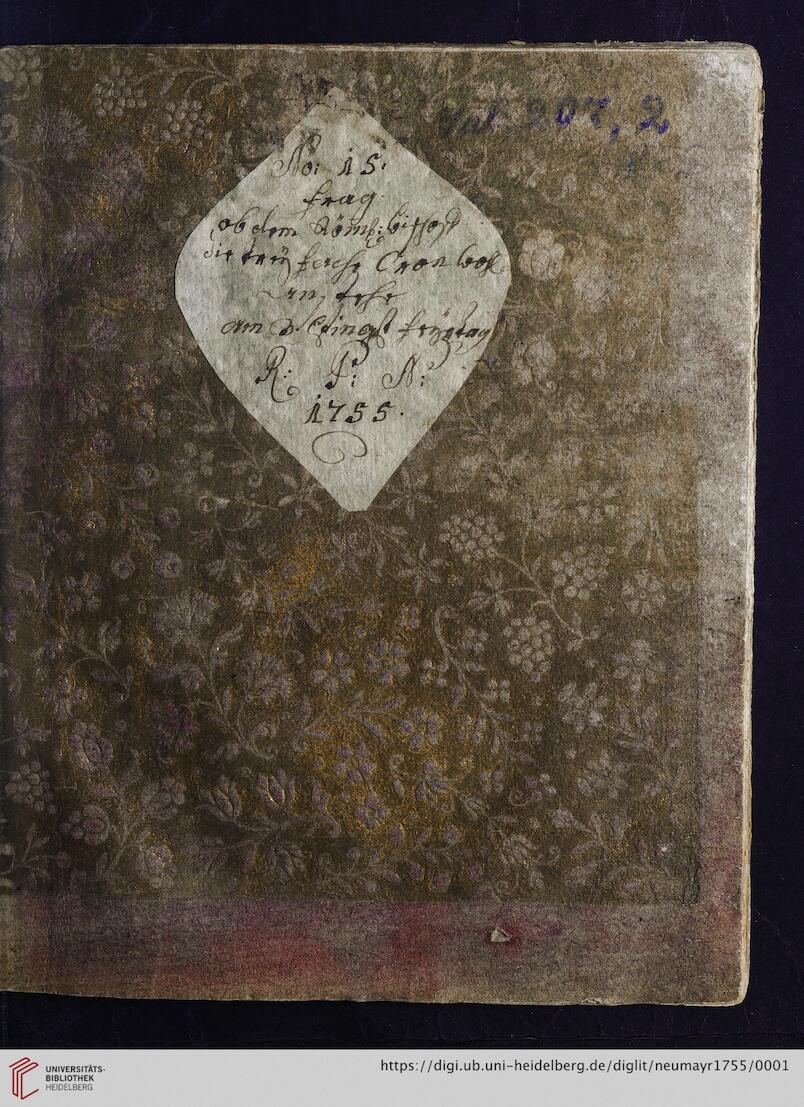 Sal. 207, 2
No: 15.
frag
ob dem Röms: bischof
die dreyfache Cron wohl
an stehe
am Pfingst freytag
R: P: N:
1755.
UNIVERSITÄTS-
BIBLIOTHEK
HEIDELBERG
https://digi.ub.uni-heidelberg.de/diglit/neumayr1755/0001